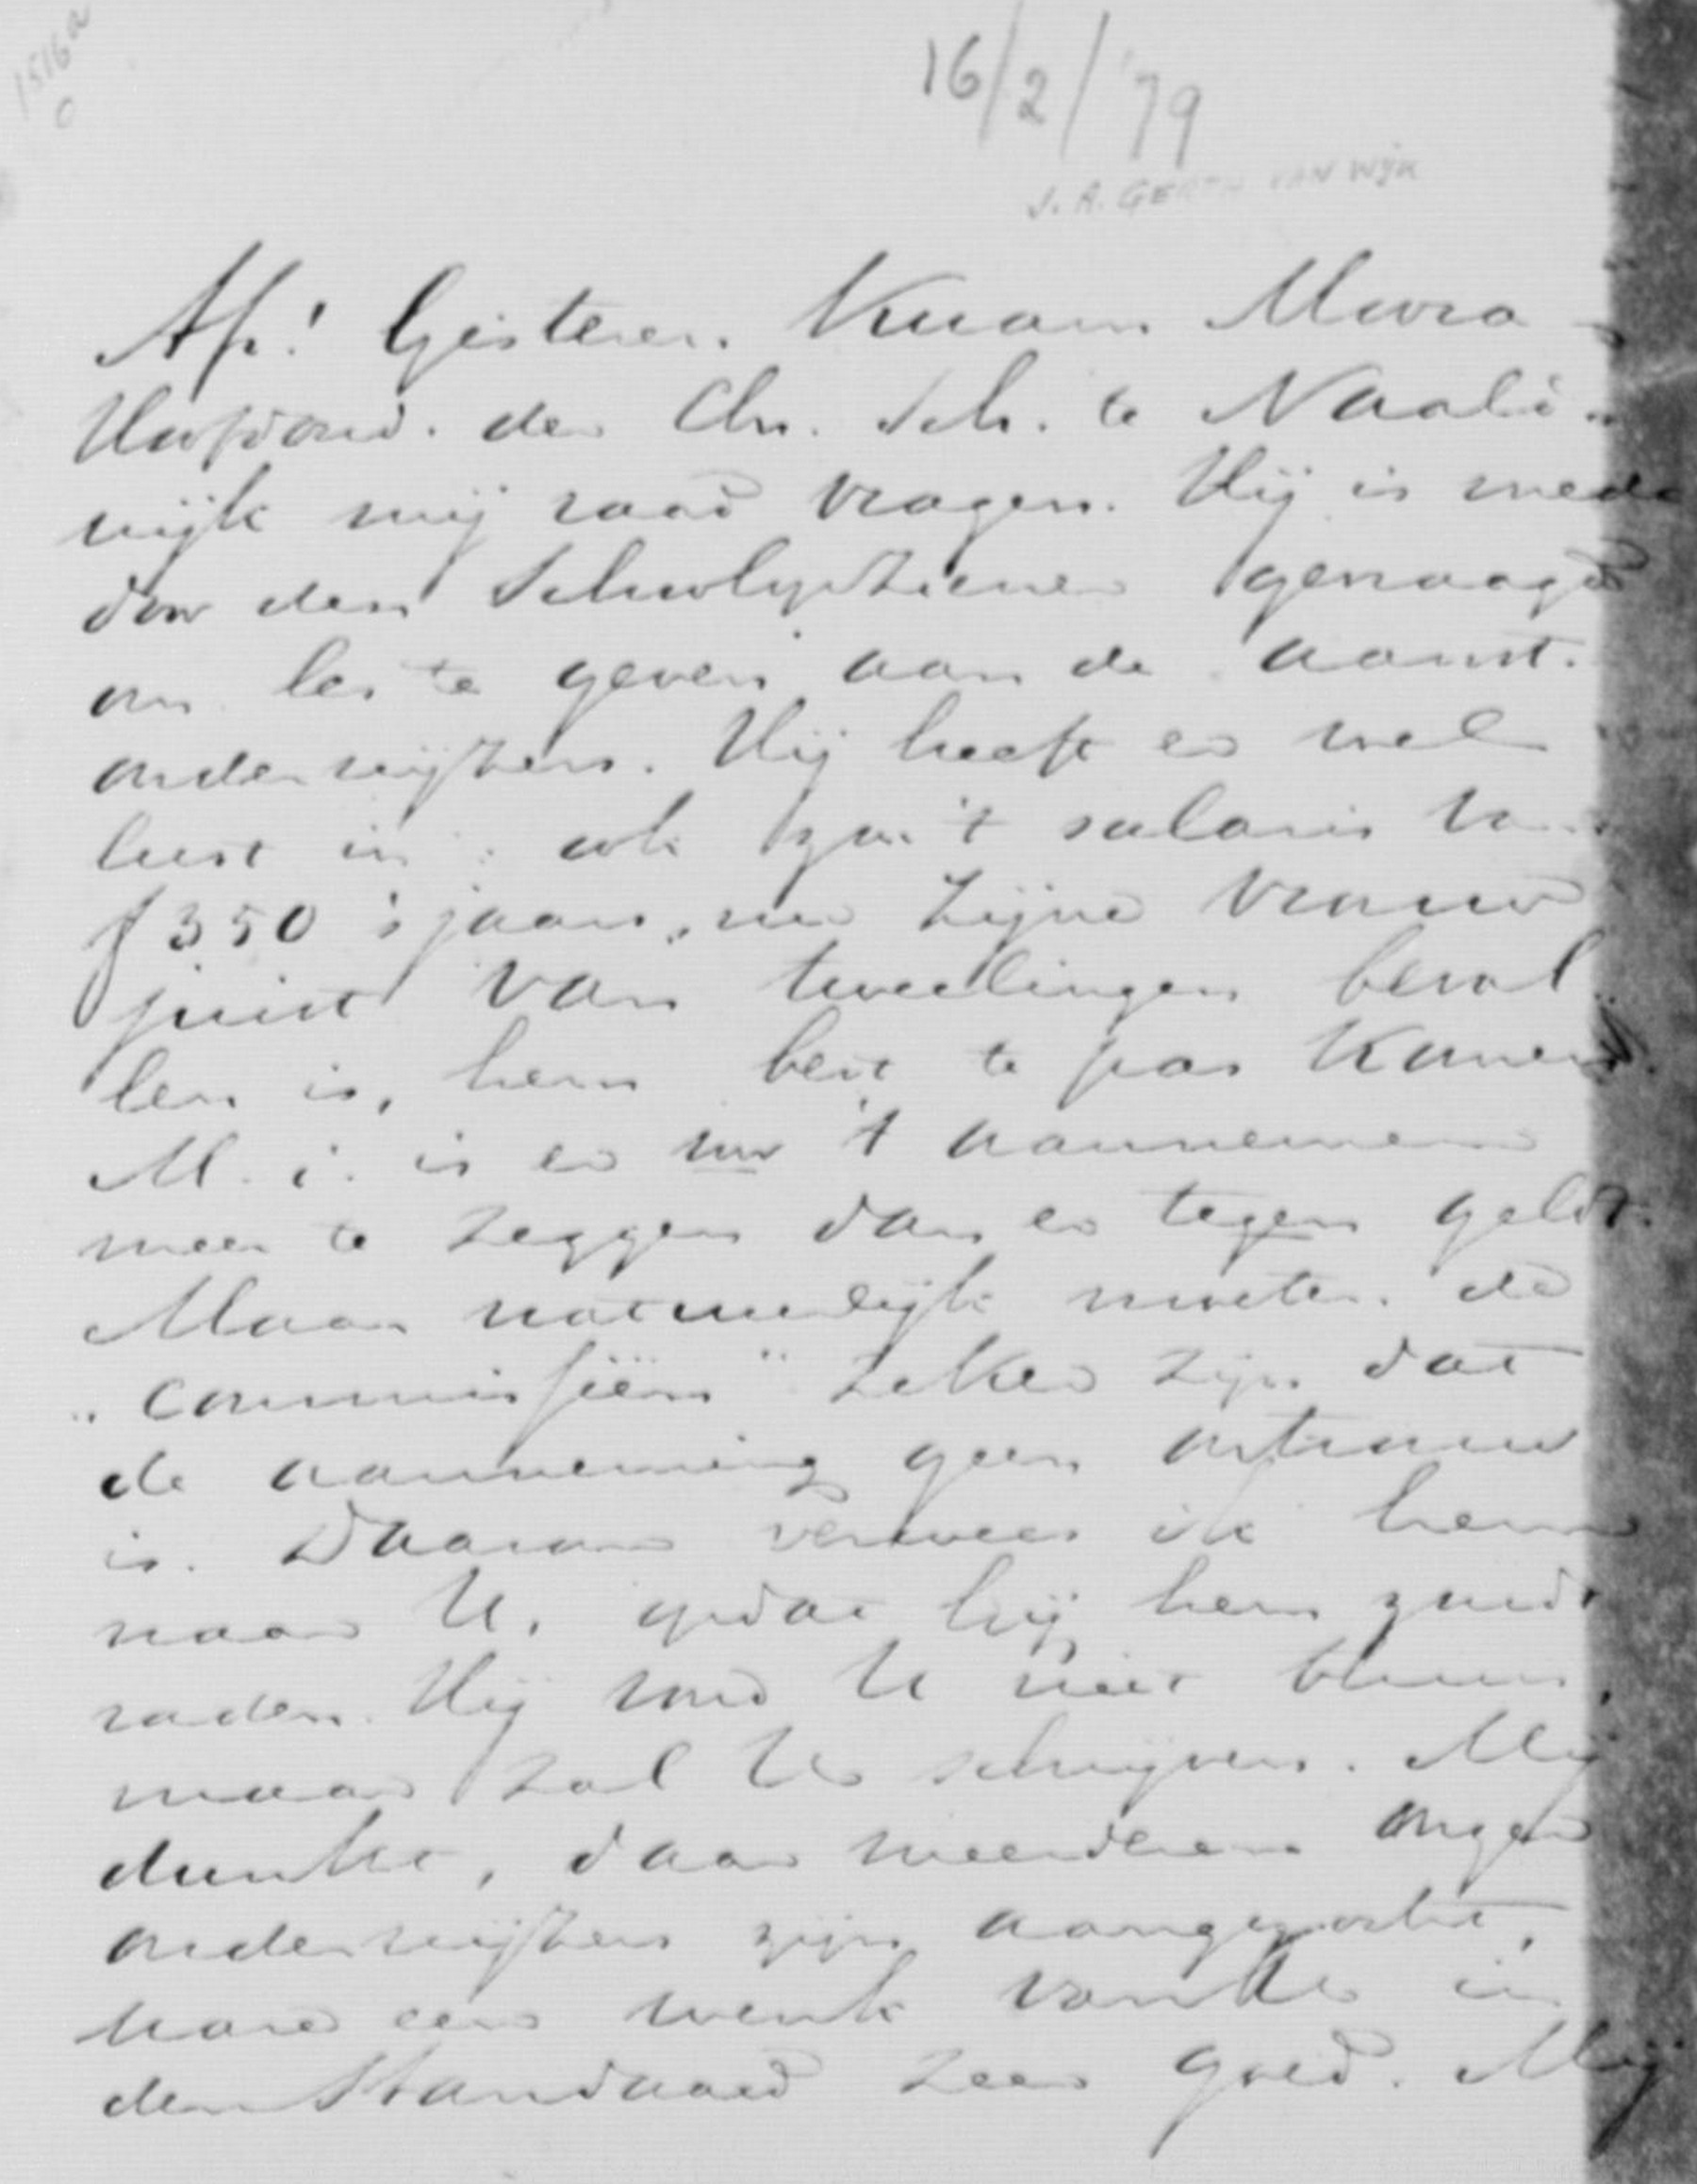 1516a
0
16/2/'79
J. A. GERTH VAN WIJK
Af! Gisteren kwam Mura
Hoofdond. der Chr. Sch. te Naald-
wijk mij raad vragen. Hij is mede
door den Schoolopziener gevraagd
om les te geven aan de aanst.
onderwijzers. Hij heeft er wel
lust in; ook zou 't salaris van
f 350 's jaars, nu zijne vrouw
juist van tweelingen beval
len is, hem best te pas komen.
M. i. is er voor 't aannemen
meer te zeggen dan er tegen geldt.
Maar natuurlijk moeten de
"commissiën" zeker zijn dat
de aanneming geen ontrouw
is. Daarom verwees ik hem
naar U, opdat hij hem zoudt
raden. Hij vond U niet thuis,
maar zal U schrijven. Mij
dunkt, daar meerdere onzer
onderwijzers zijn aangezocht,
ware een wenk van U in
den Standaard zeer goed. Mij